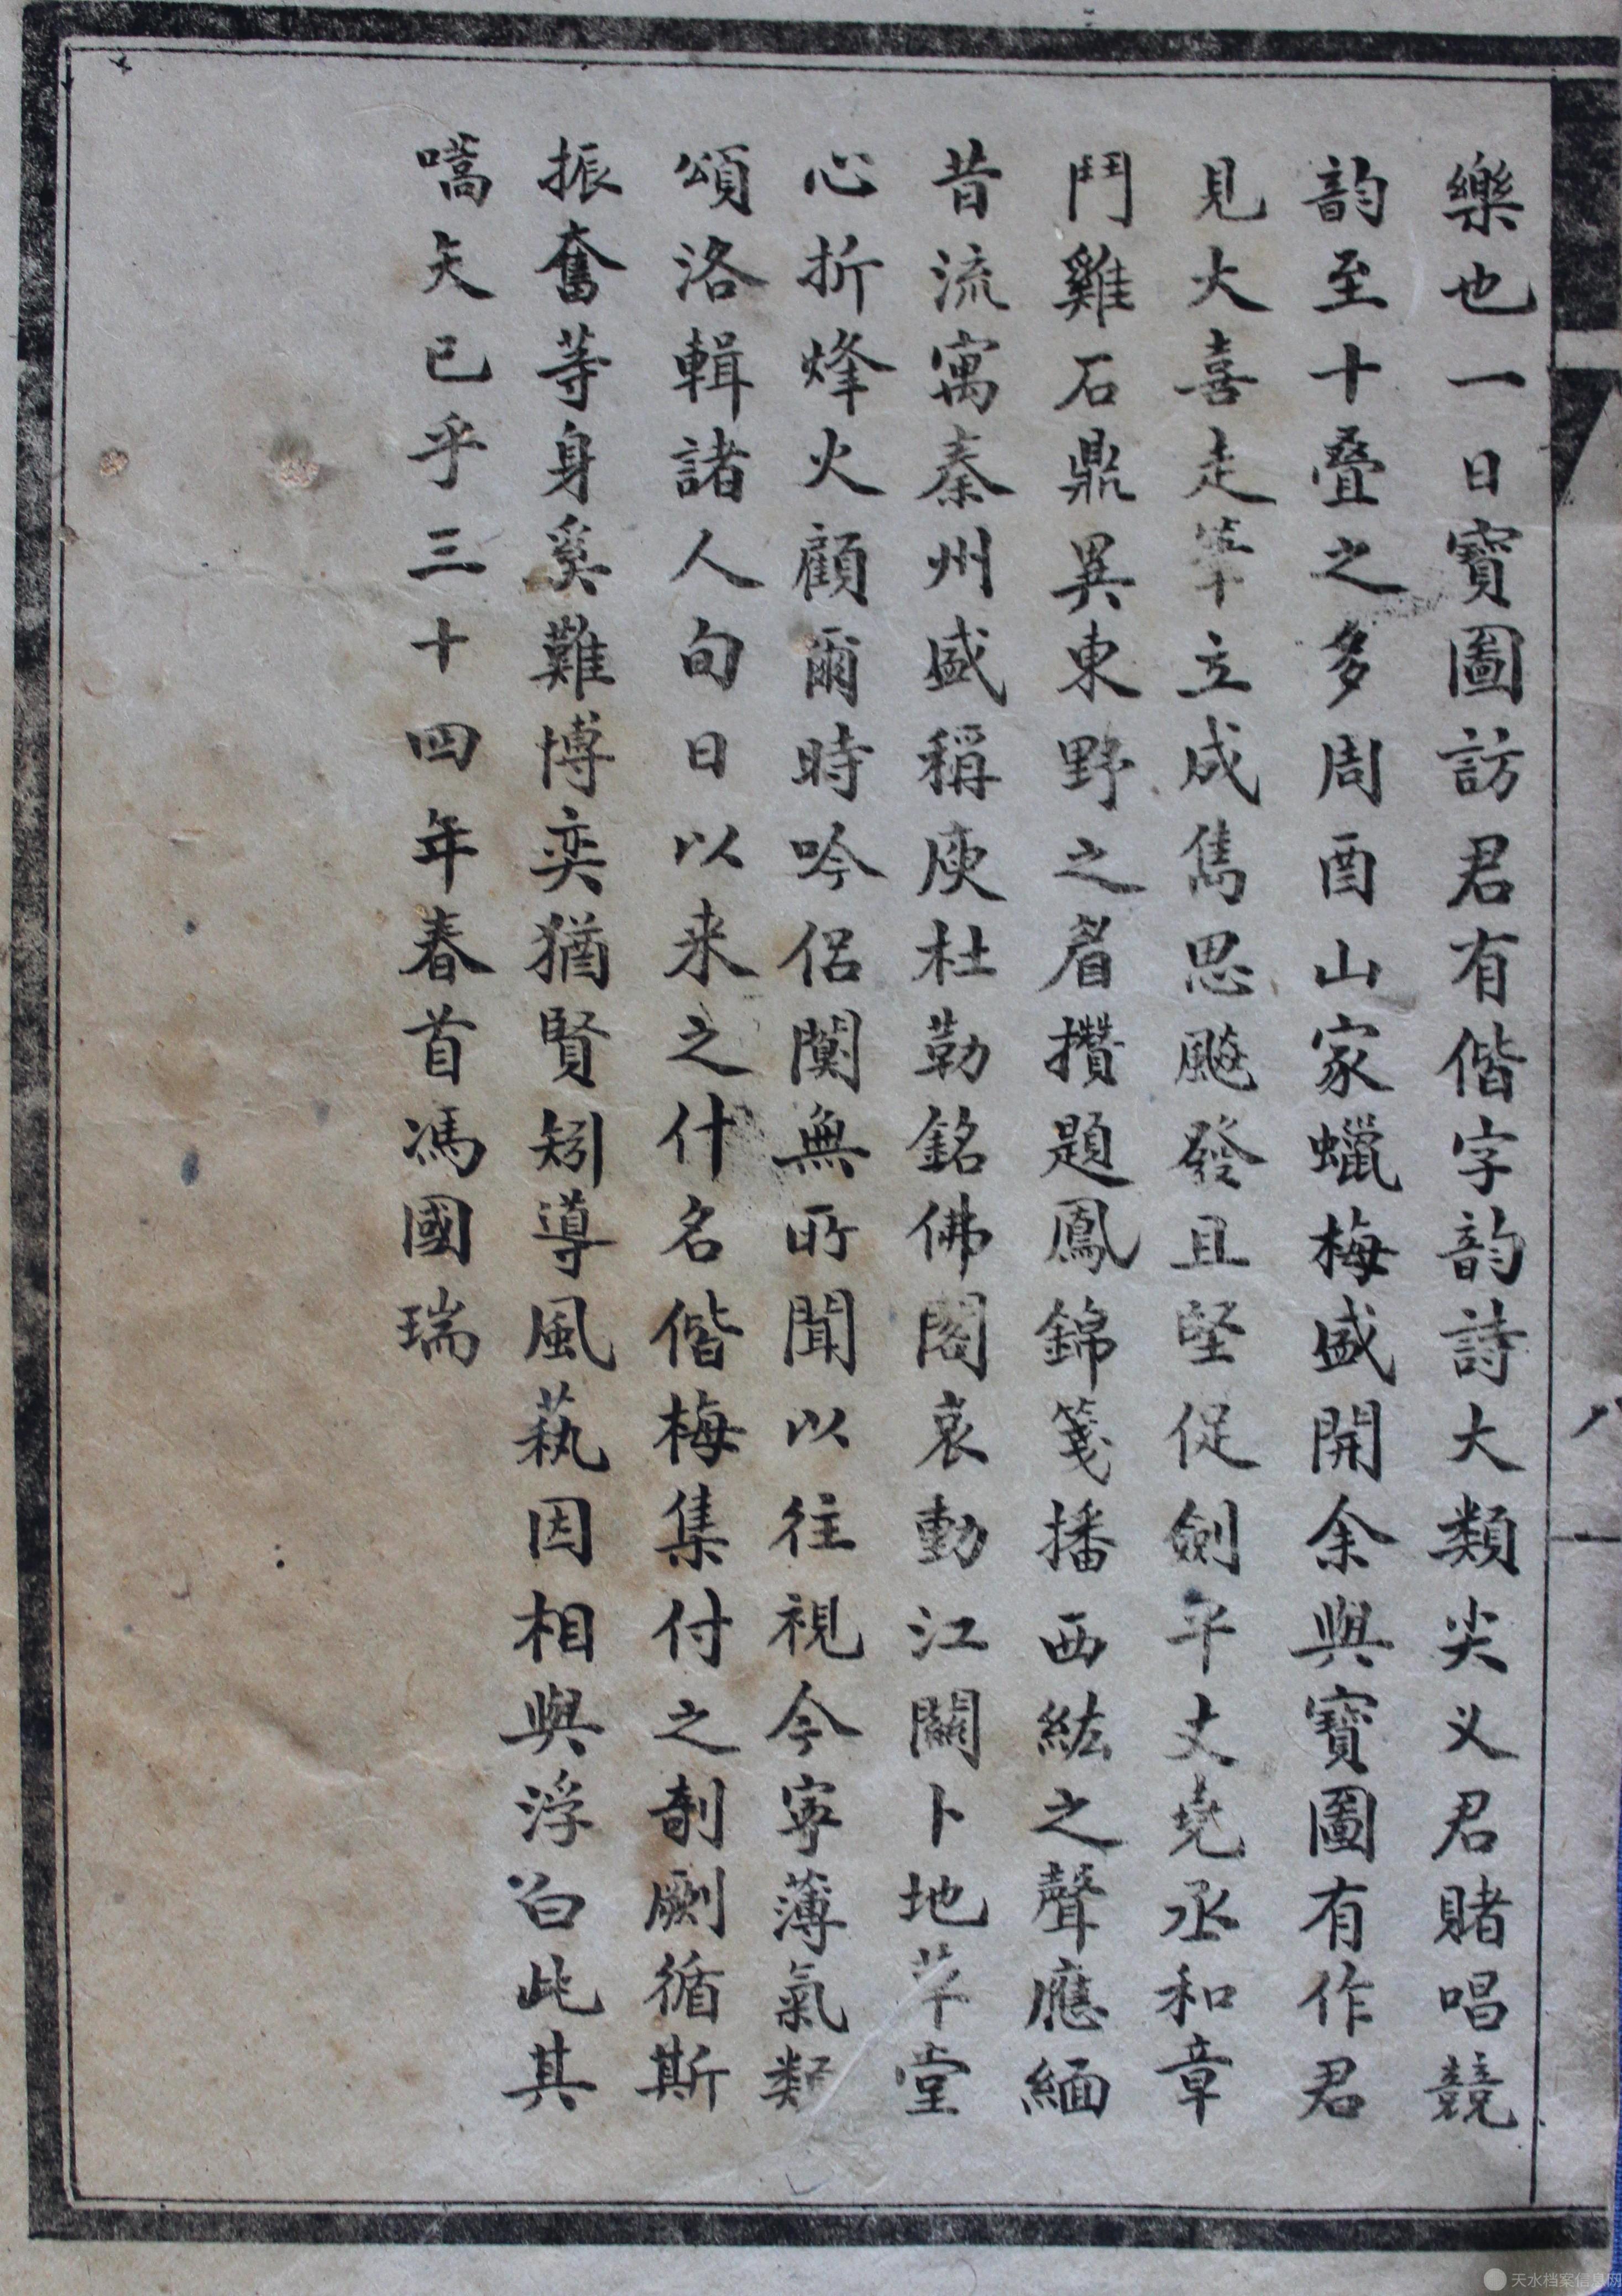 樂也一日寶圖訪君有偕字韵詩大類尖义君賭唱競
韵至十疊之多周酉山家蠟梅盛開余與寶圖有作君
見大喜走筆立成雋思飈發且堅促劍平丈堯丞和章
鬥雞石鼎異東野之眉攢題鳳錦箋播西紘之聲應緬
昔流寓秦州盛稱庾杜勒銘佛閣哀動江關卜地草堂
心折烽火顧爾時吟侶闃無所聞以往視今寧薄氣類
頌洛輯諸人旬日以来之什名偕梅集付之剞劂循斯
振奮等身奚難博奕猶賢矧導風蓺因相與浮白此其
嚆矢已乎三十四年春首馮國瑞
八
天水档案信息网